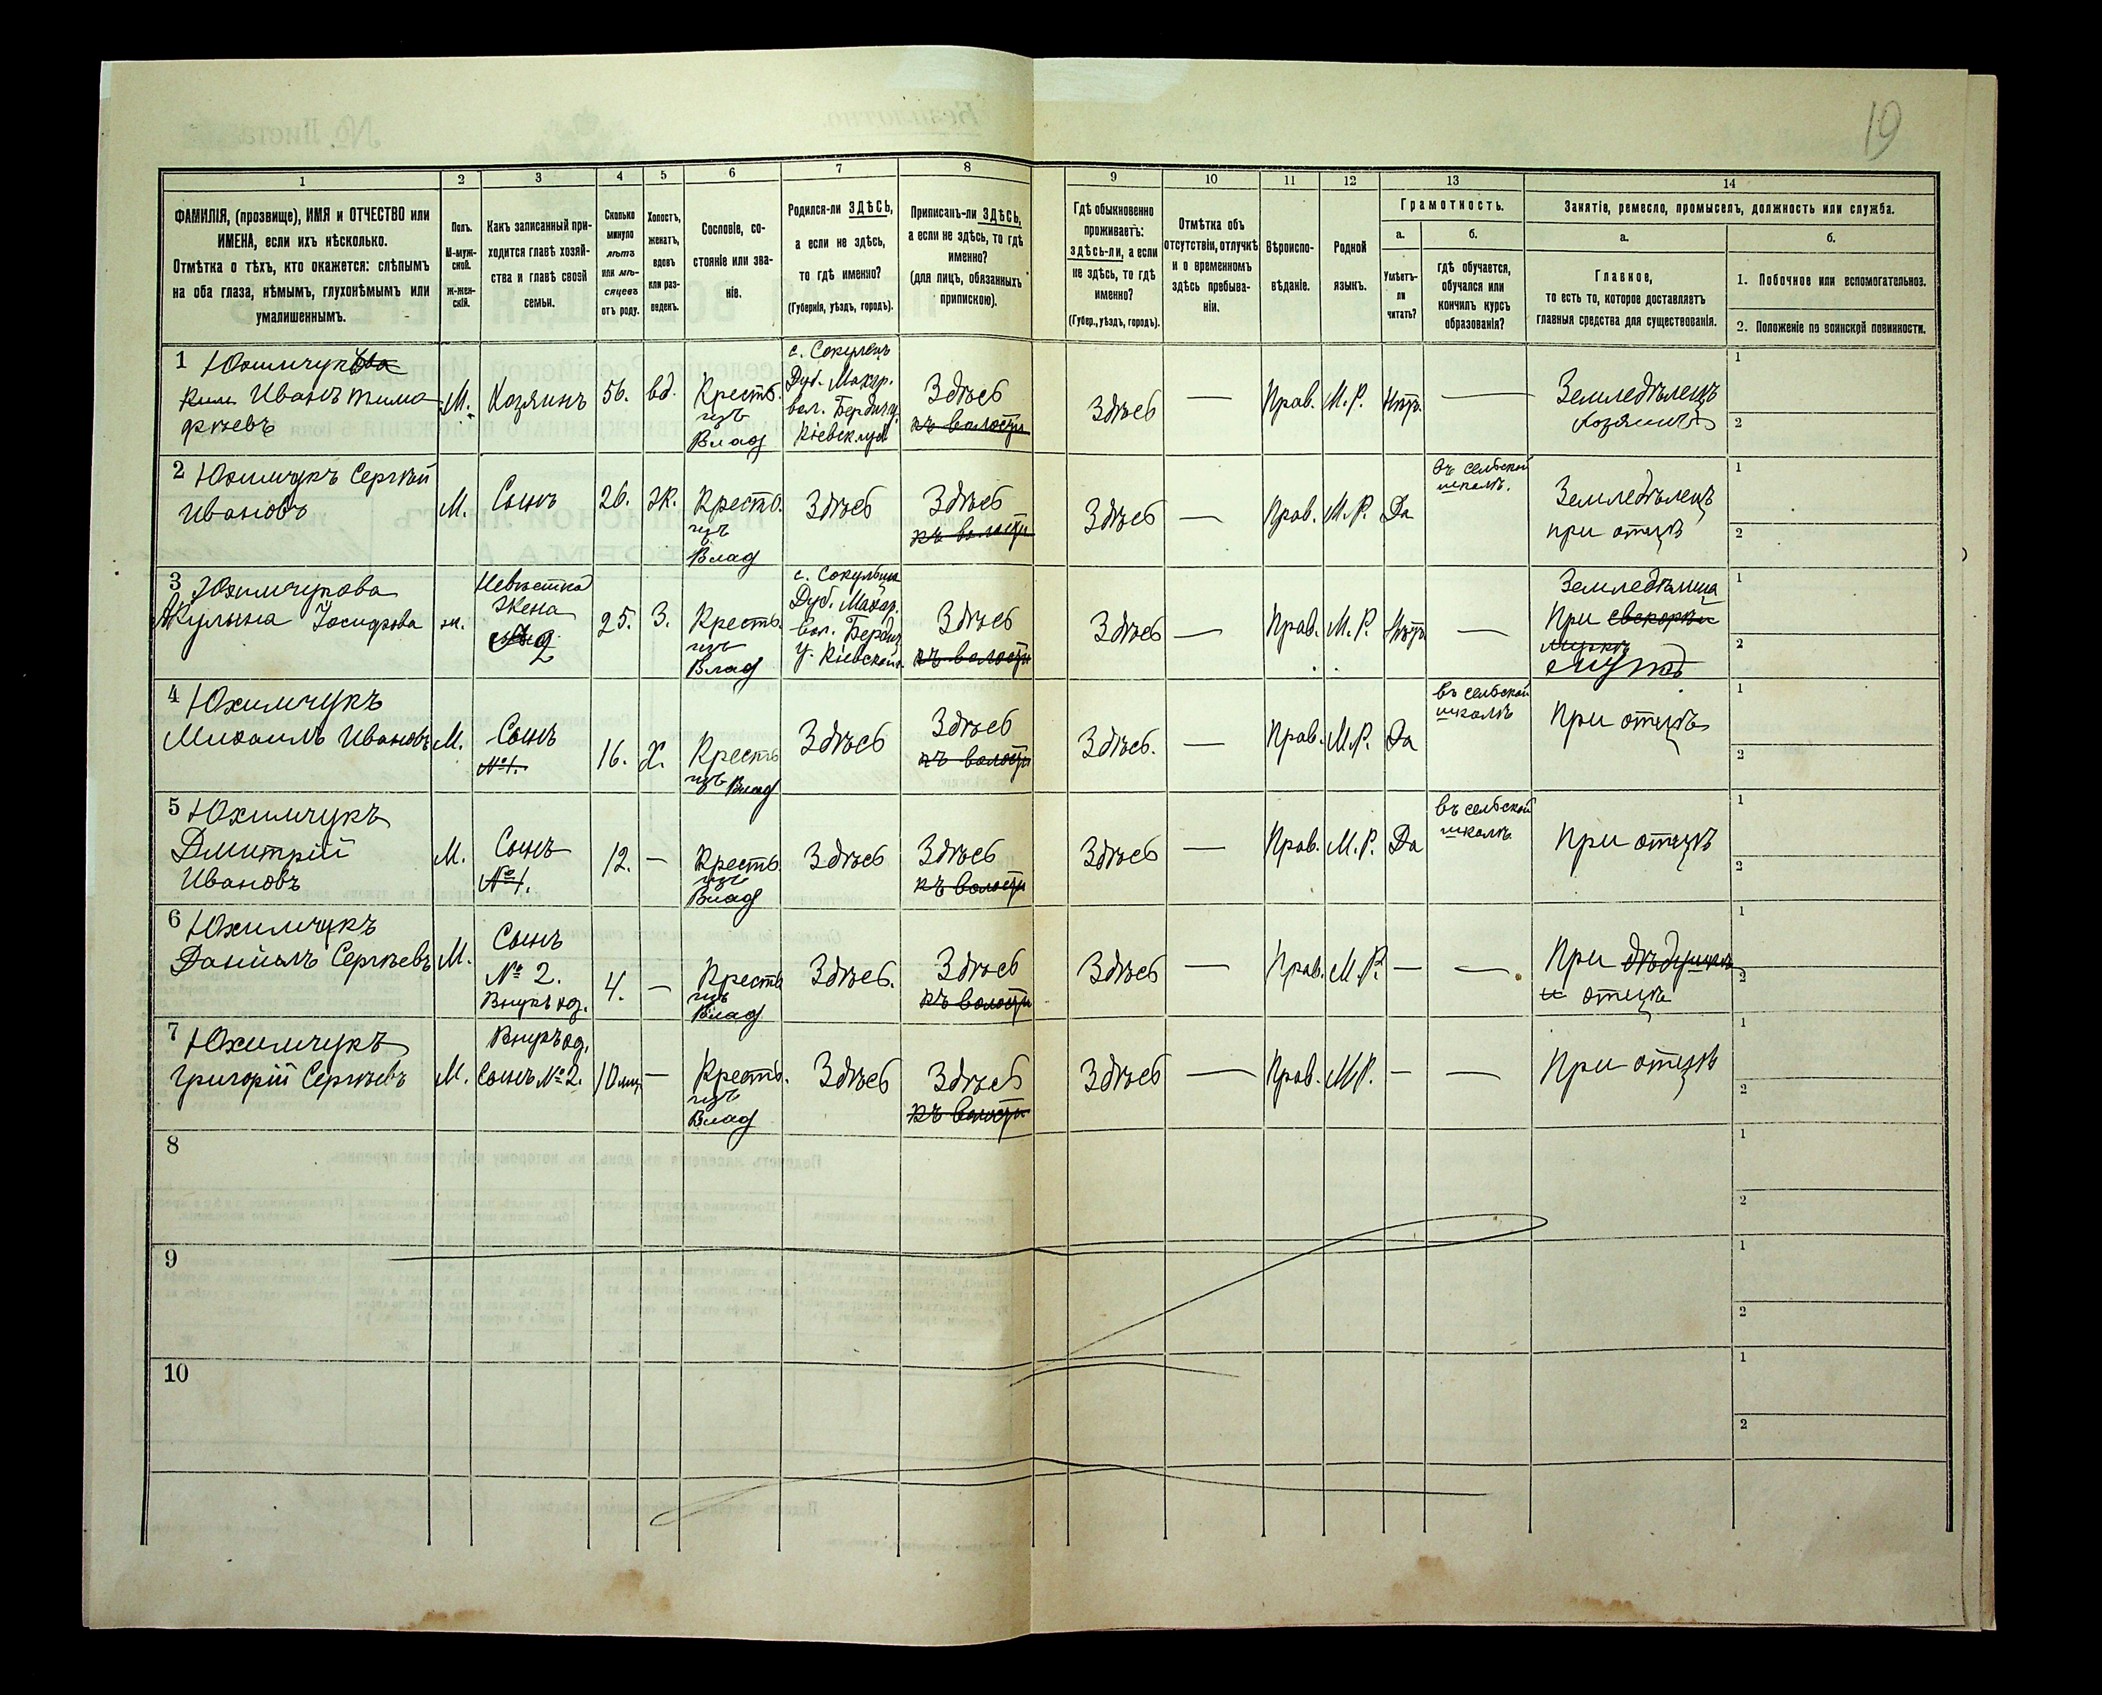 19
1
2
3
4
5
6
7
8
9
10
11
12
13
14
ФАМИЛІЯ, (прозвище), ИМЯ и ОТЧЕСТВО или
ИМЕНА, если ихъ нѣсколько.
Отмѣтка о тѣхъ, кто окажется: слѣпымъ
на оба глаза, нѣмымъ, глухонѣмымъ или
умалишеннымъ.
Полъ.
М-муж-
ской.
ж-жен-
скій.
Какъ записанный при-
ходится главѣ хозяй-
ства и главѣ своей
семьи.
Сколько
минуло
лѣтъ
или мѣ-
сяцевъ
отъ роду.
Холостъ,
женатъ,
вдовъ
или раз-
веденъ.
Сословіе, со-
стояніе или зва-
ніе.
Родился-ли ЗДѢСЬ,
а если не здѣсь,
то гдѣ именно?
(Губернія, уѣздъ, городъ).
Приписанъ-ли ЗДѢСЬ,
а если не здѣсь, то гдѣ
именно?
(для лицъ, обязанныхъ
припискою).
Гдѣ обыкновенно
проживаетъ:
ЗДѢСЬ-ЛИ, а если
не здѣсь, то гдѣ
именно?
(Губер., уѣздъ, городъ).
Отмѣтка объ
отсутствіи, отлучкѣ
и о временномъ
здѣсь пребыва-
ніи.
Вѣроиспо-
вѣданіе.
Родной
языкъ.
Грамотность.
а.
Умѣетъ-
ли
читать?
б.
гдѣ обучается,
обучался или
кончилъ курсъ
образованія?
Занятіе, ремесло, промыселъ, должность или служба.
а.
Главное,
то есть то, которое доставляетъ
главныя средства для существованія.
б.
1. Побочное или вспомогательное.
2. Положеніе по воинской повинности.
1 Юхимчукъ
Иванъ Тимо
фѣевъ
М.
Хозяинъ
56.
вд.
Крестъ.
изъ
Влад
с. Сокулецъ
Дуб. Махар.
вол. Бердич.
Кіевск. губ
Здѣсь
къ волости
Здѣсь
—
Прав.
М. Р.
Нѣтъ.
—
Земледѣлецъ
хозяинъ
1
2
2 Юхимчукъ Сергѣй
Ивановъ
М.
Сынъ
26.
Ж.
Крестъ.
изъ
Влад
Здѣсь
Здѣсь
къ волости
Здѣсь
—
Прав.
М. Р.
Да
въ сельской
школѣ.
Земледѣлецъ
при отцѣ
1
2
3 Юхимчукова
Акулина Іосифова
ж.
Невѣстка
Жена
2
25.
З.
Крестъ.
изъ
Влад
с. Сокульца
Дуб. Махар.
вол. Бердич
у. Кіевской
Здѣсь
къ волости
Здѣсь
—
Прав.
М. Р.
Нѣтъ
—
Земледѣлица
При свекорѣ
мужѣ
1
2
4 Юхимчукъ
Михаилъ Ивановъ
М.
Сынъ
№ 1.
16.
Х.
Крестъ
изъ Влад
Здѣсь
Здѣсь
къ волости
Здѣсь.
—
Прав.
М. Р.
Да
въ сельской
школѣ
При отцѣ
1
2
5 Юхимчукъ
Дмитрій
Ивановъ
М.
Сынъ
№ 1.
12.
—
Крестъ
изъ
Влад
Здѣсь
Здѣсь
къ волости
Здѣсь
—
Прав.
М. Р.
Да
въ сельской
школѣ
При отцѣ
1
2
6 Юхимчукъ
Даніилъ Сергѣевъ
М.
Сынъ
№ 2.
Внукъ
4.
—
Крестъ
изъ
Влад
Здѣсь.
Здѣсь
къ волости
Здѣсь
—
Прав.
М. Р.
—
—
При дѣдушкѣ
и отцѣ
1
2
7 Юхимчукъ
Григорій Сергѣевъ
М.
Внукъ
сынъ № 2.
10 мѣц
—
Крестъ.
изъ
Влад
Здѣсь
Здѣсь
къ волости
Здѣсь
—
Прав.
М. Р.
—
—
При отцѣ
1
2
8
1
2
9
1
2
10
1
2